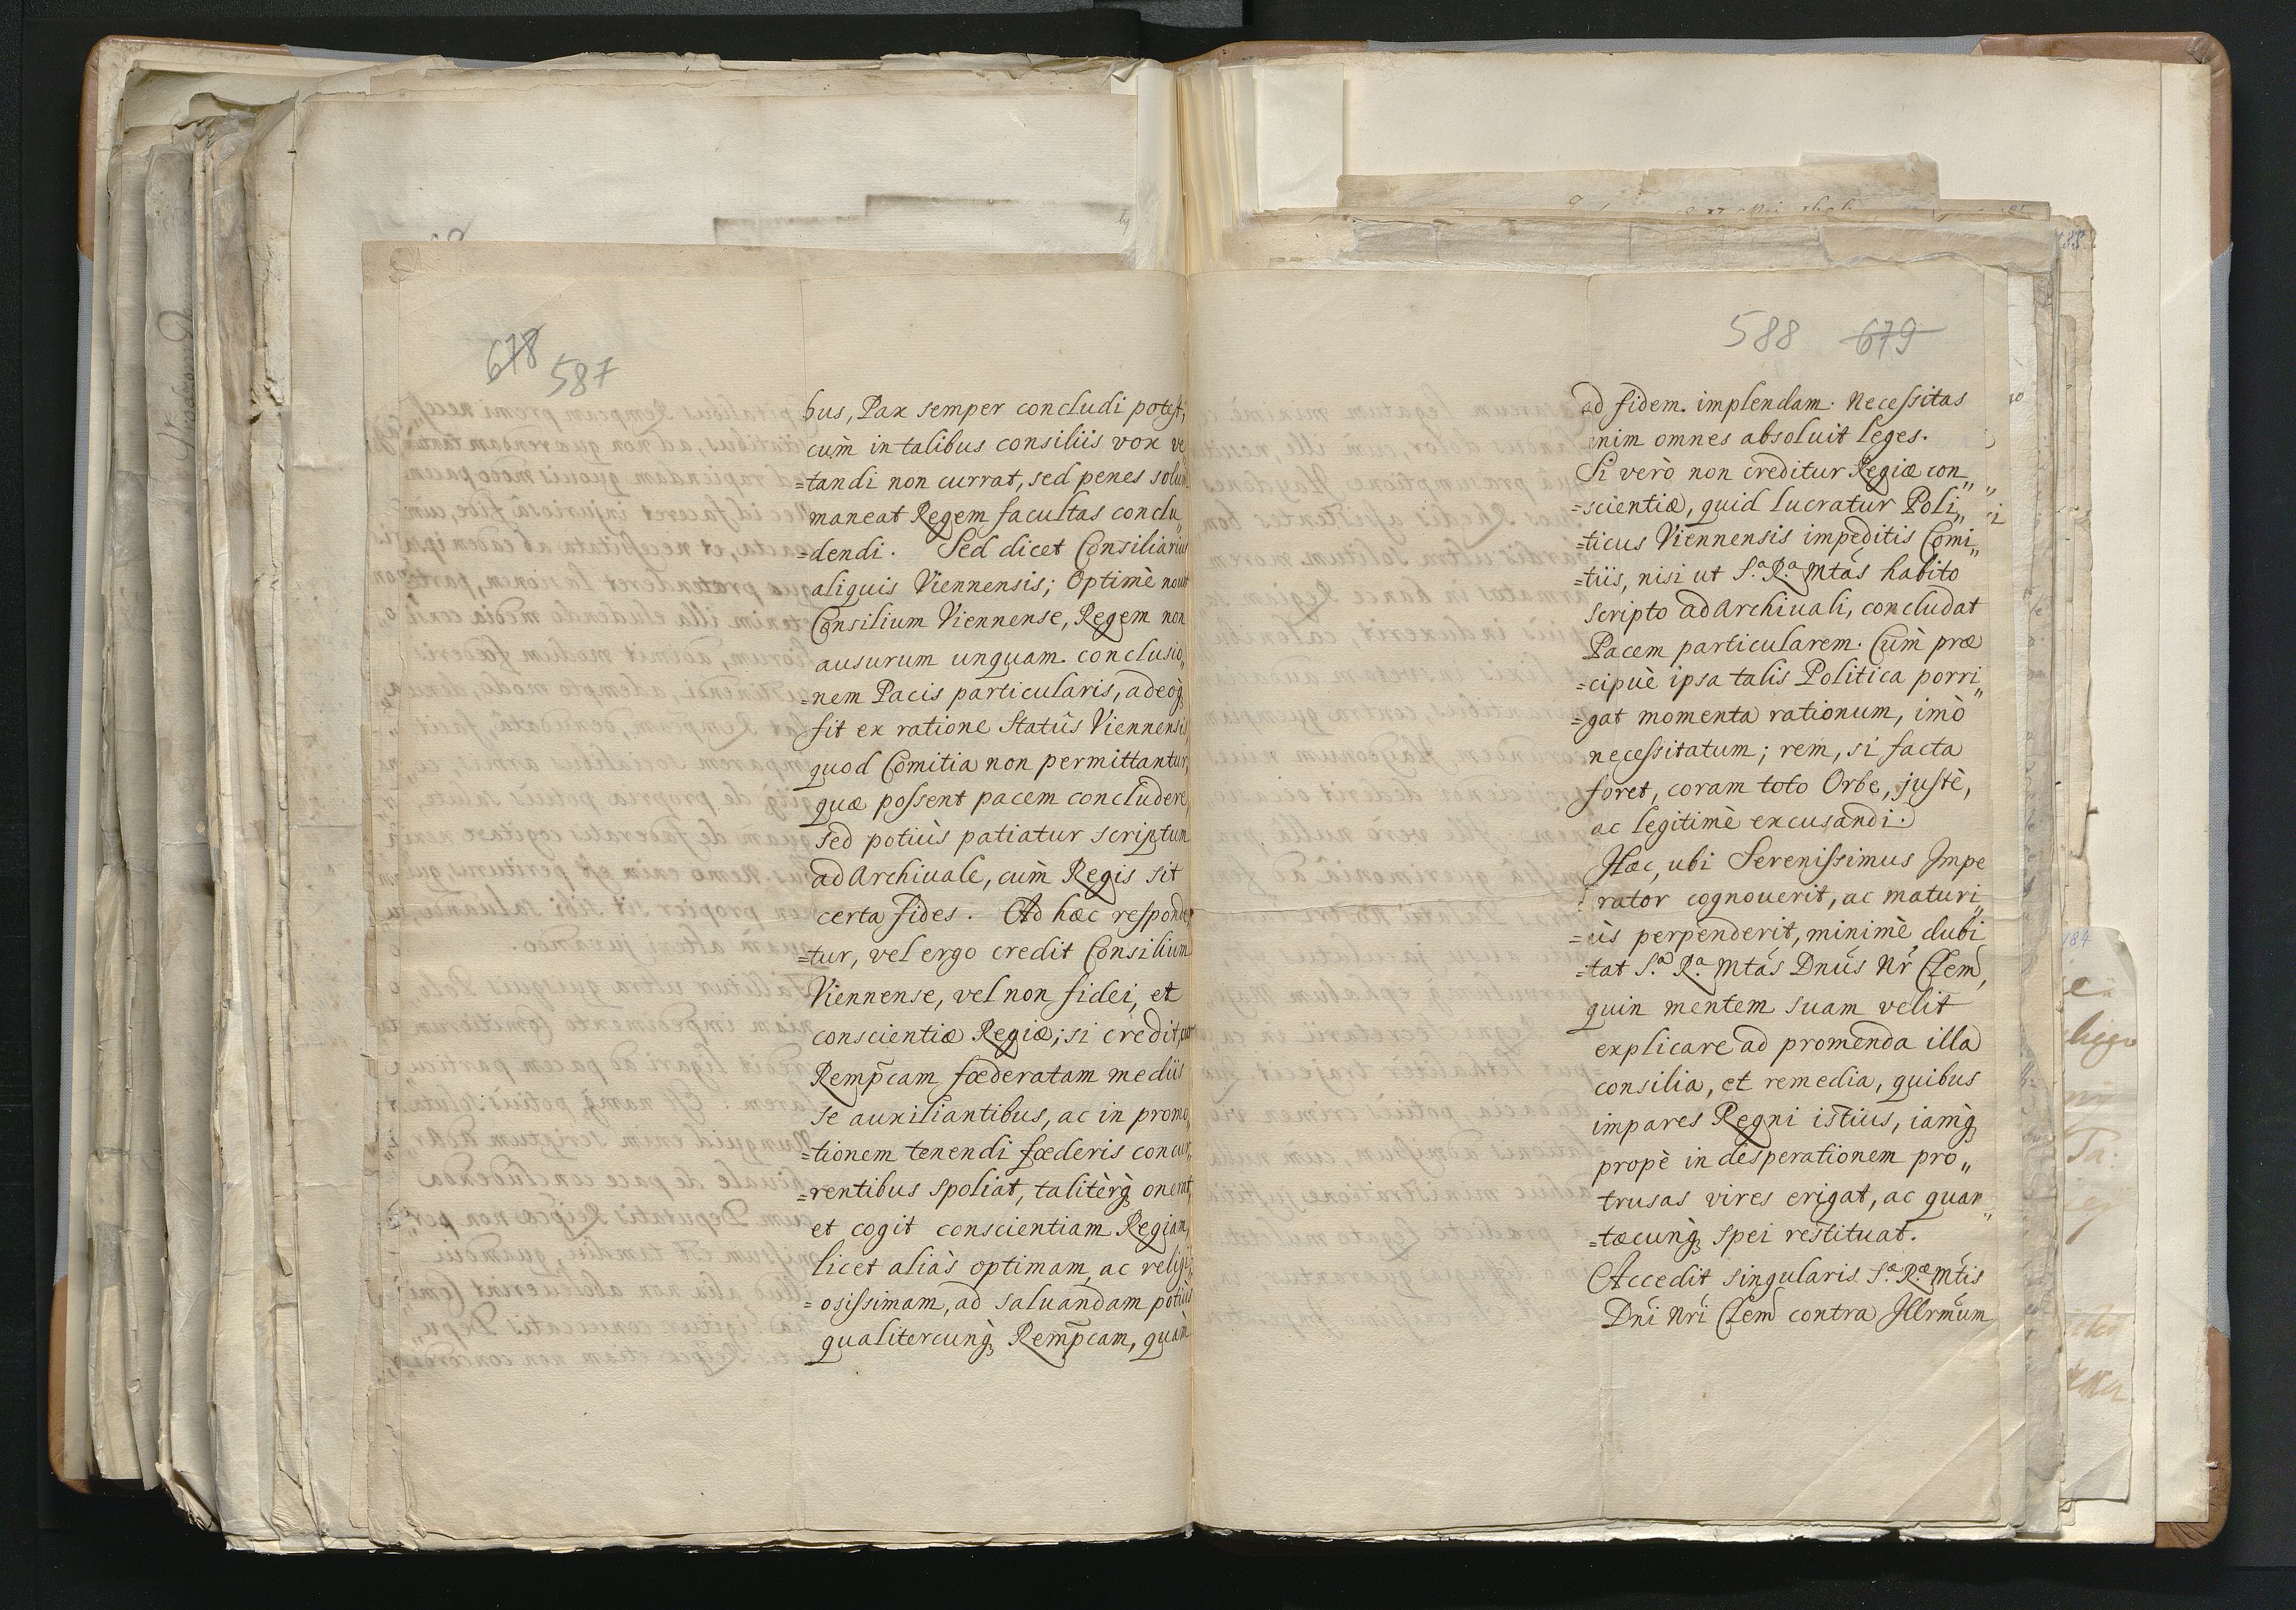 678
587
bus, Pax semper concludi potest,
cum̀ in talibus consiliis vox ve
=tandi non currat, sed penes solum
maneat Regem facultas conclu„
=dendi. Sed dicet Consiliarius
aliquis Viennensis; Optimè nouit
Consilium Viennense, Regem non
ausurum unquam conclusio„
=nem Pacis particularis, adeoq́;
sit ex ratione Statûs Viennensis,
quod Comitia non permittantur,
quæ possent pacem concludere,
sed potiùs patiatur scriptum
ad Archiuale, cum̀ Regis sit
certa fides. Ad hæc responde
=tur, vel ergo credit Consilium
Viennense, vel non fidei, et
conscientiæ Regiæ; si credit, cur
Remp̃cam fœderatam mediis
se auxiliantibus, ac in promo„
=tionem tenendi fœderis concur„
=rentibus spoliat, talitèrq́; onerat,
et cogit conscientiam Regiam,
licet aliàs optimam, ac religi„
=osissimam, ad saluandam potiùs
qualitercunq́; Remp̃cam, quàm
588 679
ad fidem implendam. Necessitas
enim omnes absoluit leges.
Si verò non creditur Regiæ con„
=scientiæ, quid lucratur Poli„
=ticus Viennensis impeditis Comi„
=tiis, nisi ut S.ª R.ª Mtás habito
scripto ad Archiuali, concludat
Pacem particularem. Cum̀ præ
=cipuè ipsa talis Politica porri„
=gat momenta rationum, imò
necessitatum; rem, si facta
foret, coram toto Orbe, justè,
ac legitimè excusandi.
Hæc, ubi Serenissimus Impe
rator cognouerit, ac maturi„
=ùs perpenderit, minimè dubi
=tat S.ª R.ª Mtás Dnús Nŕ Clem̃,
quin mentem suam velit
explicare ad promenda illa
consilia, et remedia, quibus
impares Regni istius, iamq́;
propè in desperationem pro„
trusas vires erigat, ac quan„
=tæcunq́; spei restituat.
Accedit singularis S.æ R.æ Mtís
Dní Nrí Clem̃ contra Illrmúm